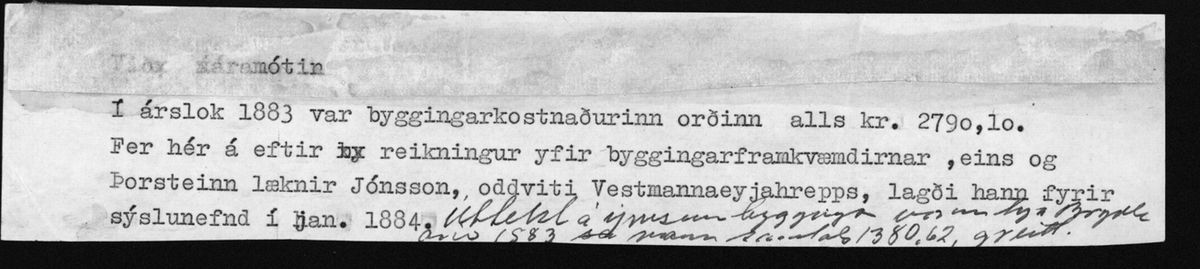 Við áramótin
Í árslok 1883 var byggingarkostnaðurinn orðinn alls kr. 279o,1o.
Fer hér á eftir reikningur yfir byggingarframkvæmdirnar ,eins og
Þorsteinn læknir Jónsson, oddviti Vestmannaeyjahrepps, lagði hann fyrir
sýslunefnd í jan. 1884. Úttekt á ýmsum bygginga vörum hjá Bryde
árið 1883 nam samtals 1380,62, greitt.